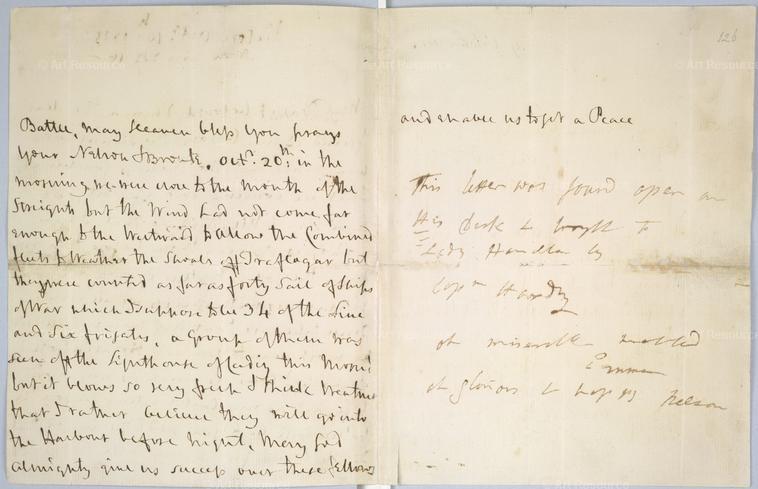 126
Battle, may Heaven bless you prays
your Nelson & Bronte, Octr. 20th: in the
morning we were close to the mouth of the
Streights but the Wind had not come far
enough to the Westward to allow the Combined
fleets to Weather the Shoals off Traflagar but
they were counted as far as forty Sail of Ships
of War which I suppose to be 34 of the Line
and Six frigates, a Group of them was
seen off the Lighthouse of Cadiz this Morng
but it blows so very fresh & thick weather
that I rather believe they will go into
the Harbour before night, May God
Almighty give us success over these fellows
and enable us to get a Peace
This letter was found open on
His Desk & brought to
Lady Hamilton by
Capn Hardy
oh miserable wretched
Emma
oh glorious & happy Nelson
© Art Resource
© Art Resource
© Art Resource
© Art Resource